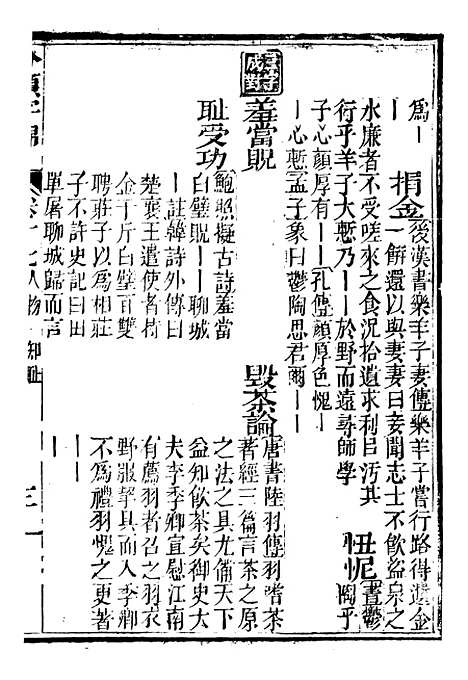 爲｜　捐金　後漢書樂羊子妻傳樂羊子嘗行路得遺金
｜一餅還以與妻妻曰妾聞志士不飲盜泉之
水廉者不受嗟來之食況拾遺求利㠯汚其
行乎羊子大慙乃｜｜於野而遠尋師學　忸怩　書鬱陶乎
子心顔厚有｜｜孔傳顔厚色愧｜
｜心慙孟子象曰鬱陶思君爾｜｜
成對
羞當貺
恥受功
鮑照擬古詩羞當
白璧貺｜｜聊城
｜註韓詩外傳曰
楚襄王遣使者持
金十斤白璧百雙
聘莊子以爲相莊
子不許史記曰田
單屠聊城歸而言
毀茶論
唐書陸羽傳羽嗜茶
著經三篇言茶之原
之法之具尤備天下
益知飲茶矣御史大
夫李季卿宣慰江南
有薦羽者召之羽衣
野服挈具而入季卿
不爲禮羽愧之更著
｜｜｜
卷十七人物
三